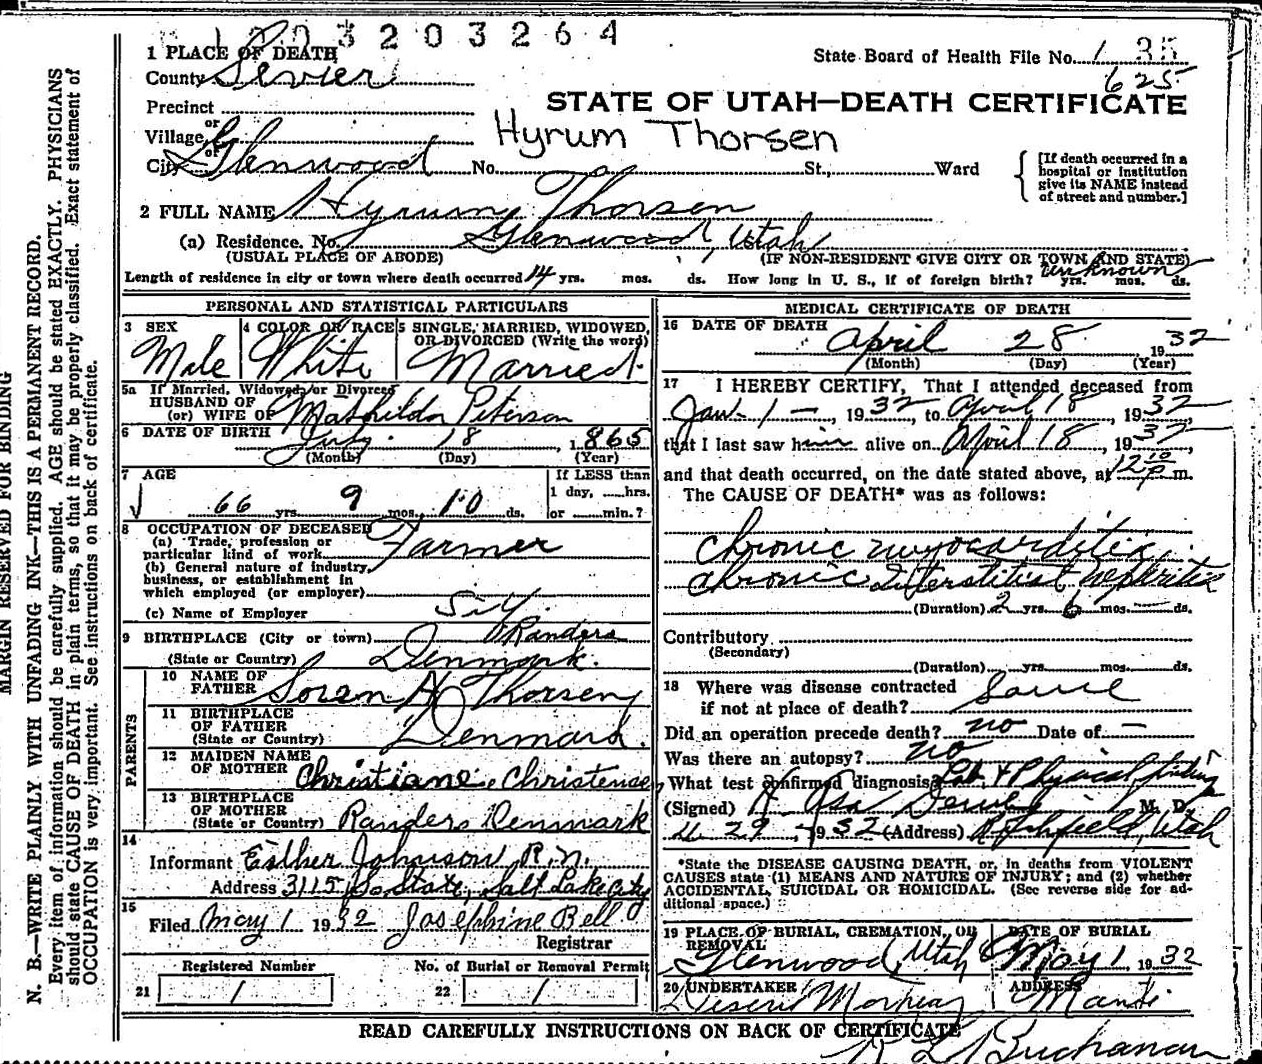 1003203264
1 PLACE OF DEATH
State Board of Health File No. 135
County Sevier
625
STATE OF UTAH—DEATH CERTIFICATE
Precinct
or
Village
Hyrum Thorsen
or
City Glenwood No. St., Ward
[If death occurred in a hospital or institution give its NAME instead of street and number.]
2 FULL NAME Hyrum Thorsen
(a) Residence. No. Glenwood, Utah
(USUAL PLACE OF ABODE) (IF NON-RESIDENT GIVE CITY OR TOWN AND STATE)
Length of residence in city or town where death occurred 14 yrs. mos. ds. How long in U. S., if of foreign birth? unknown yrs. mos. ds.
PERSONAL AND STATISTICAL PARTICULARS
3 SEX Male
4 COLOR OR RACE White
5 SINGLE, MARRIED, WIDOWED, OR DIVORCED (Write the word) Married
5a If Married, Widowed, or Divorced
HUSBAND OF
(or) WIFE OF Mathilda Peterson
6 DATE OF BIRTH July 18 1865
(Month) (Day) (Year)
7 AGE
66 yrs. 9 mos. 10 ds.
If LESS than
1 day, hrs.
or min.?
8 OCCUPATION OF DECEASED
(a) Trade, profession or
particular kind of work Farmer
(b) General nature of industry,
business, or establishment in
which employed (or employer)
(c) Name of Employer
9 BIRTHPLACE (City or town) Randers
(State or Country) Denmark.
PARENTS
10 NAME OF
FATHER Soren A Thorsen
11 BIRTHPLACE
OF FATHER
(State or Country) Denmark.
12 MAIDEN NAME
OF MOTHER Christiane Christense
13 BIRTHPLACE
OF MOTHER
(State or Country) Randers Denmark
14
Informant Esther Johnson R.N.
Address 3115 So State, Salt Lake City
15
Filed May 1 1932 Josephine Bell
Registrar
Registered Number No. of Burial or Removal Permit
21 1 22 1
MEDICAL CERTIFICATE OF DEATH
16 DATE OF DEATH
April 28 1932
(Month) (Day) (Year)
17 I HEREBY CERTIFY, That I attended deceased from
Jan 1 — , 1932 to April 18, 1932
that I last saw him alive on April 18, 1932
and that death occurred, on the date stated above, at 12 10 p m.
The CAUSE OF DEATH* was as follows:
Chronic myocarditis,
Chronic interstitial nephritis
(Duration) 2 yrs. 6 mos. — ds.
Contributory
(Secondary)
(Duration) yrs. mos. ds.
18 Where was disease contracted
if not at place of death? Same
Did an operation precede death? no Date of —
Was there an autopsy? no
What test confirmed diagnosis? Lab. & Physical findings
(Signed) M. D.
4-29, 1932 (Address) Richfield, Utah
*State the DISEASE CAUSING DEATH, or, in deaths from VIOLENT
CAUSES state (1) MEANS AND NATURE OF INJURY; and (2) whether
ACCIDENTAL, SUICIDAL OR HOMICIDAL. (See reverse side for ad-
ditional space.)
19 PLACE OF BURIAL, CREMATION, OR
REMOVAL
Glenwood, Utah
DATE OF BURIAL
May 1 1932
20 UNDERTAKER
Deseret Mortuary
ADDRESS
Manti
READ CAREFULLY INSTRUCTIONS ON BACK OF CERTIFICATE
Buchanan
MARGIN RESERVED FOR BINDING
N. B.—WRITE PLAINLY WITH UNFADING INK—THIS IS A PERMANENT RECORD.
Every item of information should be carefully supplied. AGE should be stated EXACTLY. PHYSICIANS
should state CAUSE OF DEATH in plain terms, so that it may be properly classified. Exact statement of
OCCUPATION is very important. See instructions on back of certificate.